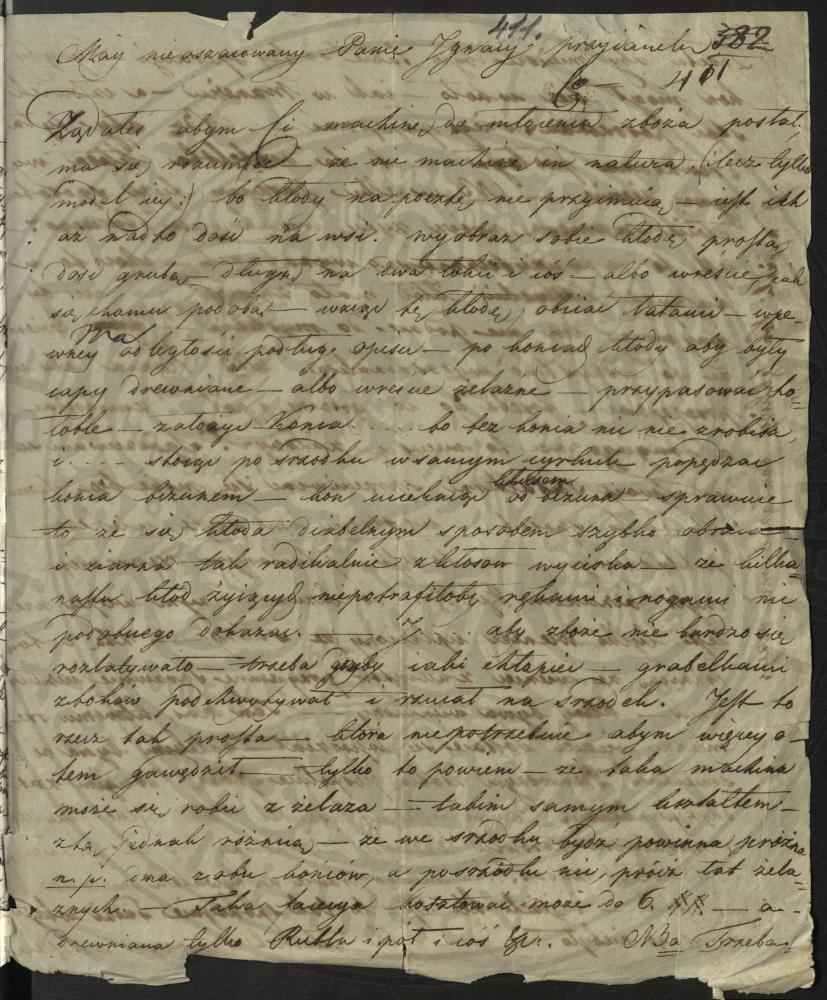 411.
Moy nieoszacowany Panie Ignacy przyiacielu 382
401
Żądałeś abym Ci machinę do młocenia zboża posłał.
ma się rozumieć — że nie machinę in natura, (: lecz tylko
model iey :) bo kłody na pocztę nie przyimuią — iest ich
aż nadto dość na wsi. Wyobraź sobie kłodę prostą
dość grubą — długą na dwa łokcie i cóś — albo wreście iak
się komu podoba — wziąć tę kłodę, obiiać łatami — w pe-
wney odległości podług opisu — po końcach kłody aby były
capy drewniane — albo wreście żelazne — przypasować ho=
łoble — założyć konia .... bo bez konia nic nie zrobisz,
i .... stoiąc po srzodku w samym cyrkule popędzać
konia bizunem — koń uciekaiąc kłusem od bizuna sprawuie
to że się kłoda diabelnym sposobem szybko obraca —
i ziarna tak radikalnie z kłosow wyciska — że kilka=
nastu kłod żyiących niepotrafiłoby rękami i nogami nic
podobnego dokazać. — I .. aby zboże nie bardzo się
rozlatywało — trzeba żeby iaki chłapiec — grabelkami
z boków podchwytywał i rzucał na srzodek. Jest to
rzecz tak prosta — która niepotrzebuie abym więcey o-
tem gawędził — tylko to powiem — że taka machina
może się robić z żelaza — takim samym kształtem —
z tą jednak różnicą — że we srzodku bydź powinna próżna
n. p. dna z obu końców, a po srzodku nic, prócz łat żela=
znych. — Taka kosztować może do 6. — a-
drewniana tylko Rubla i pół i cóś &c:. NBa Trzeba